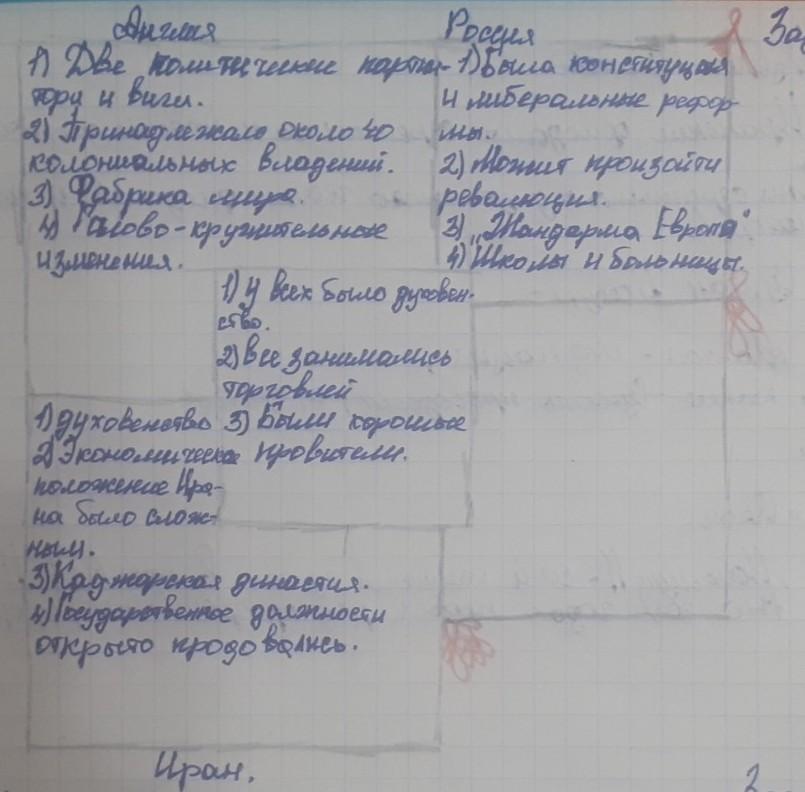 Англия
1) Две политические партии-
тори и виги.
2) Принадлежало около 40
колониальных владений.
3) Фабрика мира.
4) Галово-кружительные
изменения.
Россия
1) Была конституция
и либеральные рефор-
мы.
2) Можит произойти
революция.
3) „Жандарма Европа"
4) Школы и больницы.
1) У всех было духовен-
ство.
2) Все занимались
торговлей
3) Были хорошые
провители.
1) духовенство
2) Экономическое
положение Ира-
на было слож-
ным.
3) Каджарская династия.
4) Государственное должности
открыто продовались.
Иран.
За
2